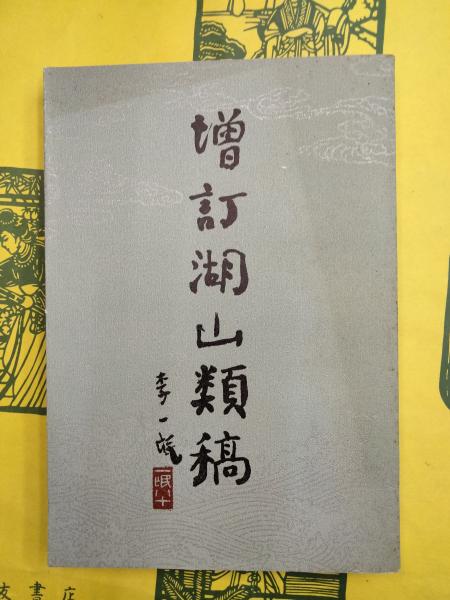 增訂湖山類稿
李一氓
一氓八十
書店